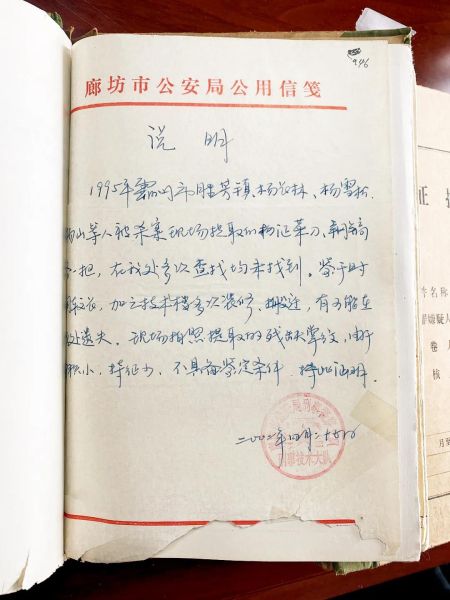 946
廊坊市公安局公用信笺
说 明
1995年霸州市胜芳镇、杨茂林、杨雪松、
山等人被杀案现场提取的物证菜刀、制镐
一把，在我处多次查找均未找到。鉴于时
较长，加之技术楼多次装修、搬迁，有可能在
处遗失。现场拍照提取的残缺掌纹，由于
积小，特征少，不具备鉴定条件 特此说明。
二〇〇二年四月二十
刑事技术大队
正
件名称
嫌疑人
卷
核